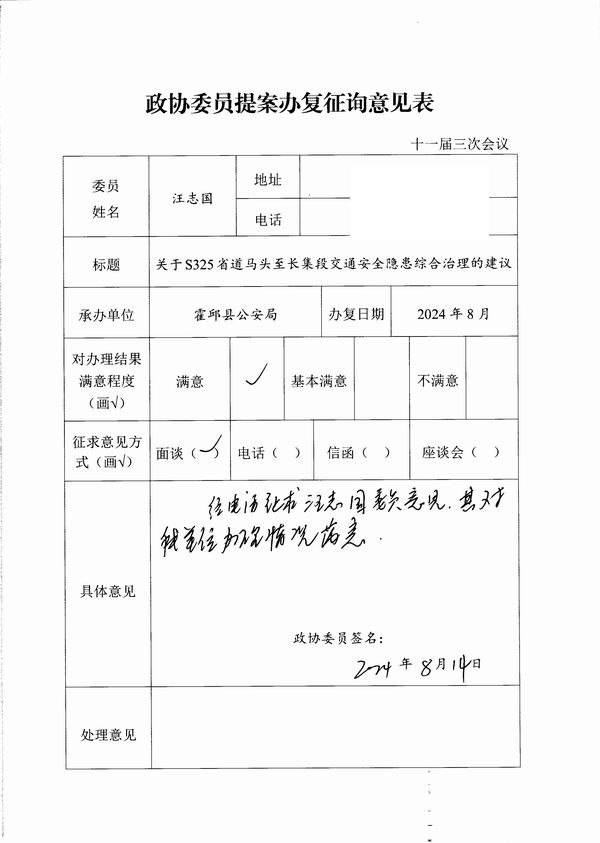 政协委员提案办复征询意见表
十一届三次会议
委员姓名 汪志国 地址
电话
标题 关于S325省道马头至长集段交通安全隐患综合治理的建议
承办单位 霍邱县公安局 办复日期 2024年8月
对办理结果满意程度（画√） 满意 ✓ 基本满意 不满意
征求意见方式（画√） 面谈（✓） 电话（ ） 信函（ ） 座谈会（ ）
具体意见
经电话征求汪志国委员意见，其对
我单位办理情况满意．
政协委员签名：
2024年8月14日
处理意见